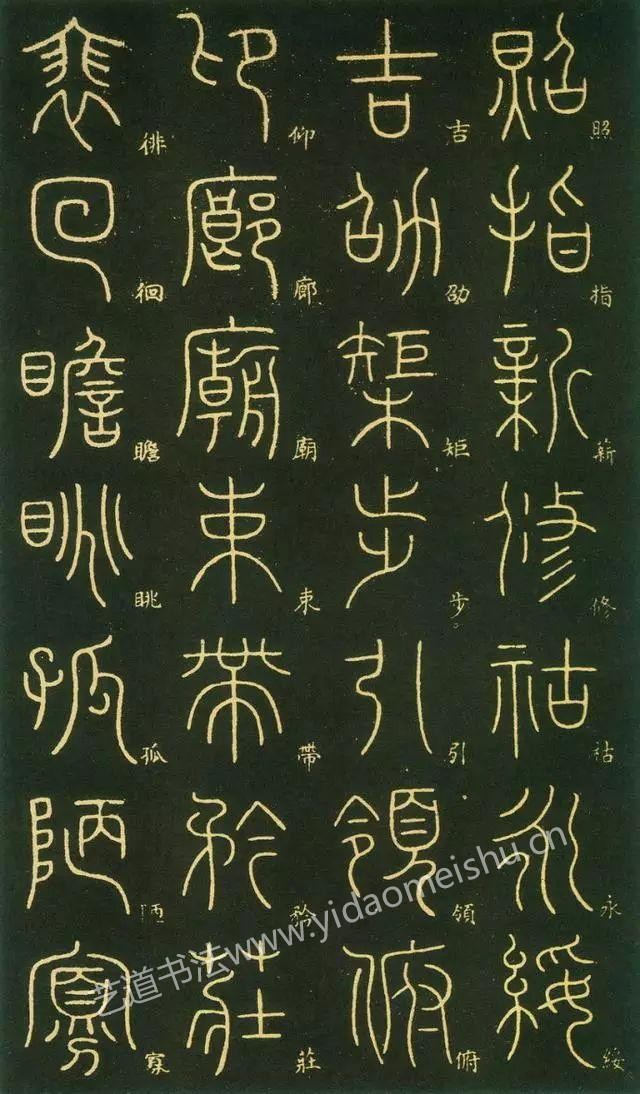 照指薪修祜永綏
吉劭矩步引領俯
仰廊廟束帶矜莊
徘徊瞻眺孤陋寡
艺道书法www.yidaomeishu.cn